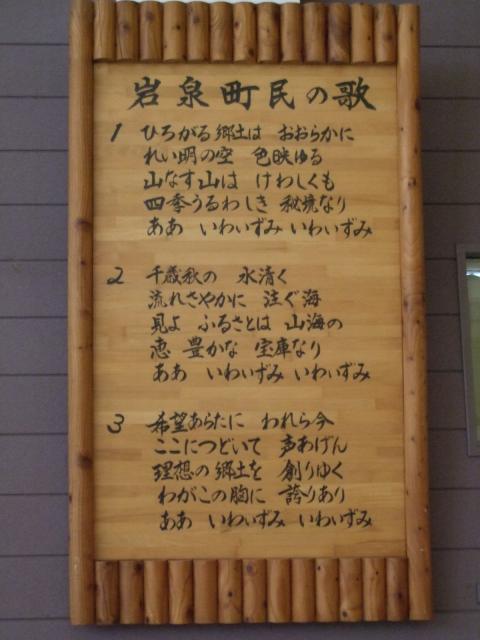 岩泉町民の歌
1 ひろがる郷土は おおらかに
れい明の空 色映ゆる
山なす山は けわしくも
四季うるわしき 秘境なり
ああ いわいずみ いわいずみ
2 千歳秋の 水清く
流れさやかに 注ぐ海
見よ ふるさとは 山海の
恵 豊かな 宝庫なり
ああ いわいずみ いわいずみ
3 希望あらたに われら今
ここにつどいて 声あげん
理想の郷土を 創りゆく
わがこの胸に 誇りあり
ああ いわいずみ いわいずみ